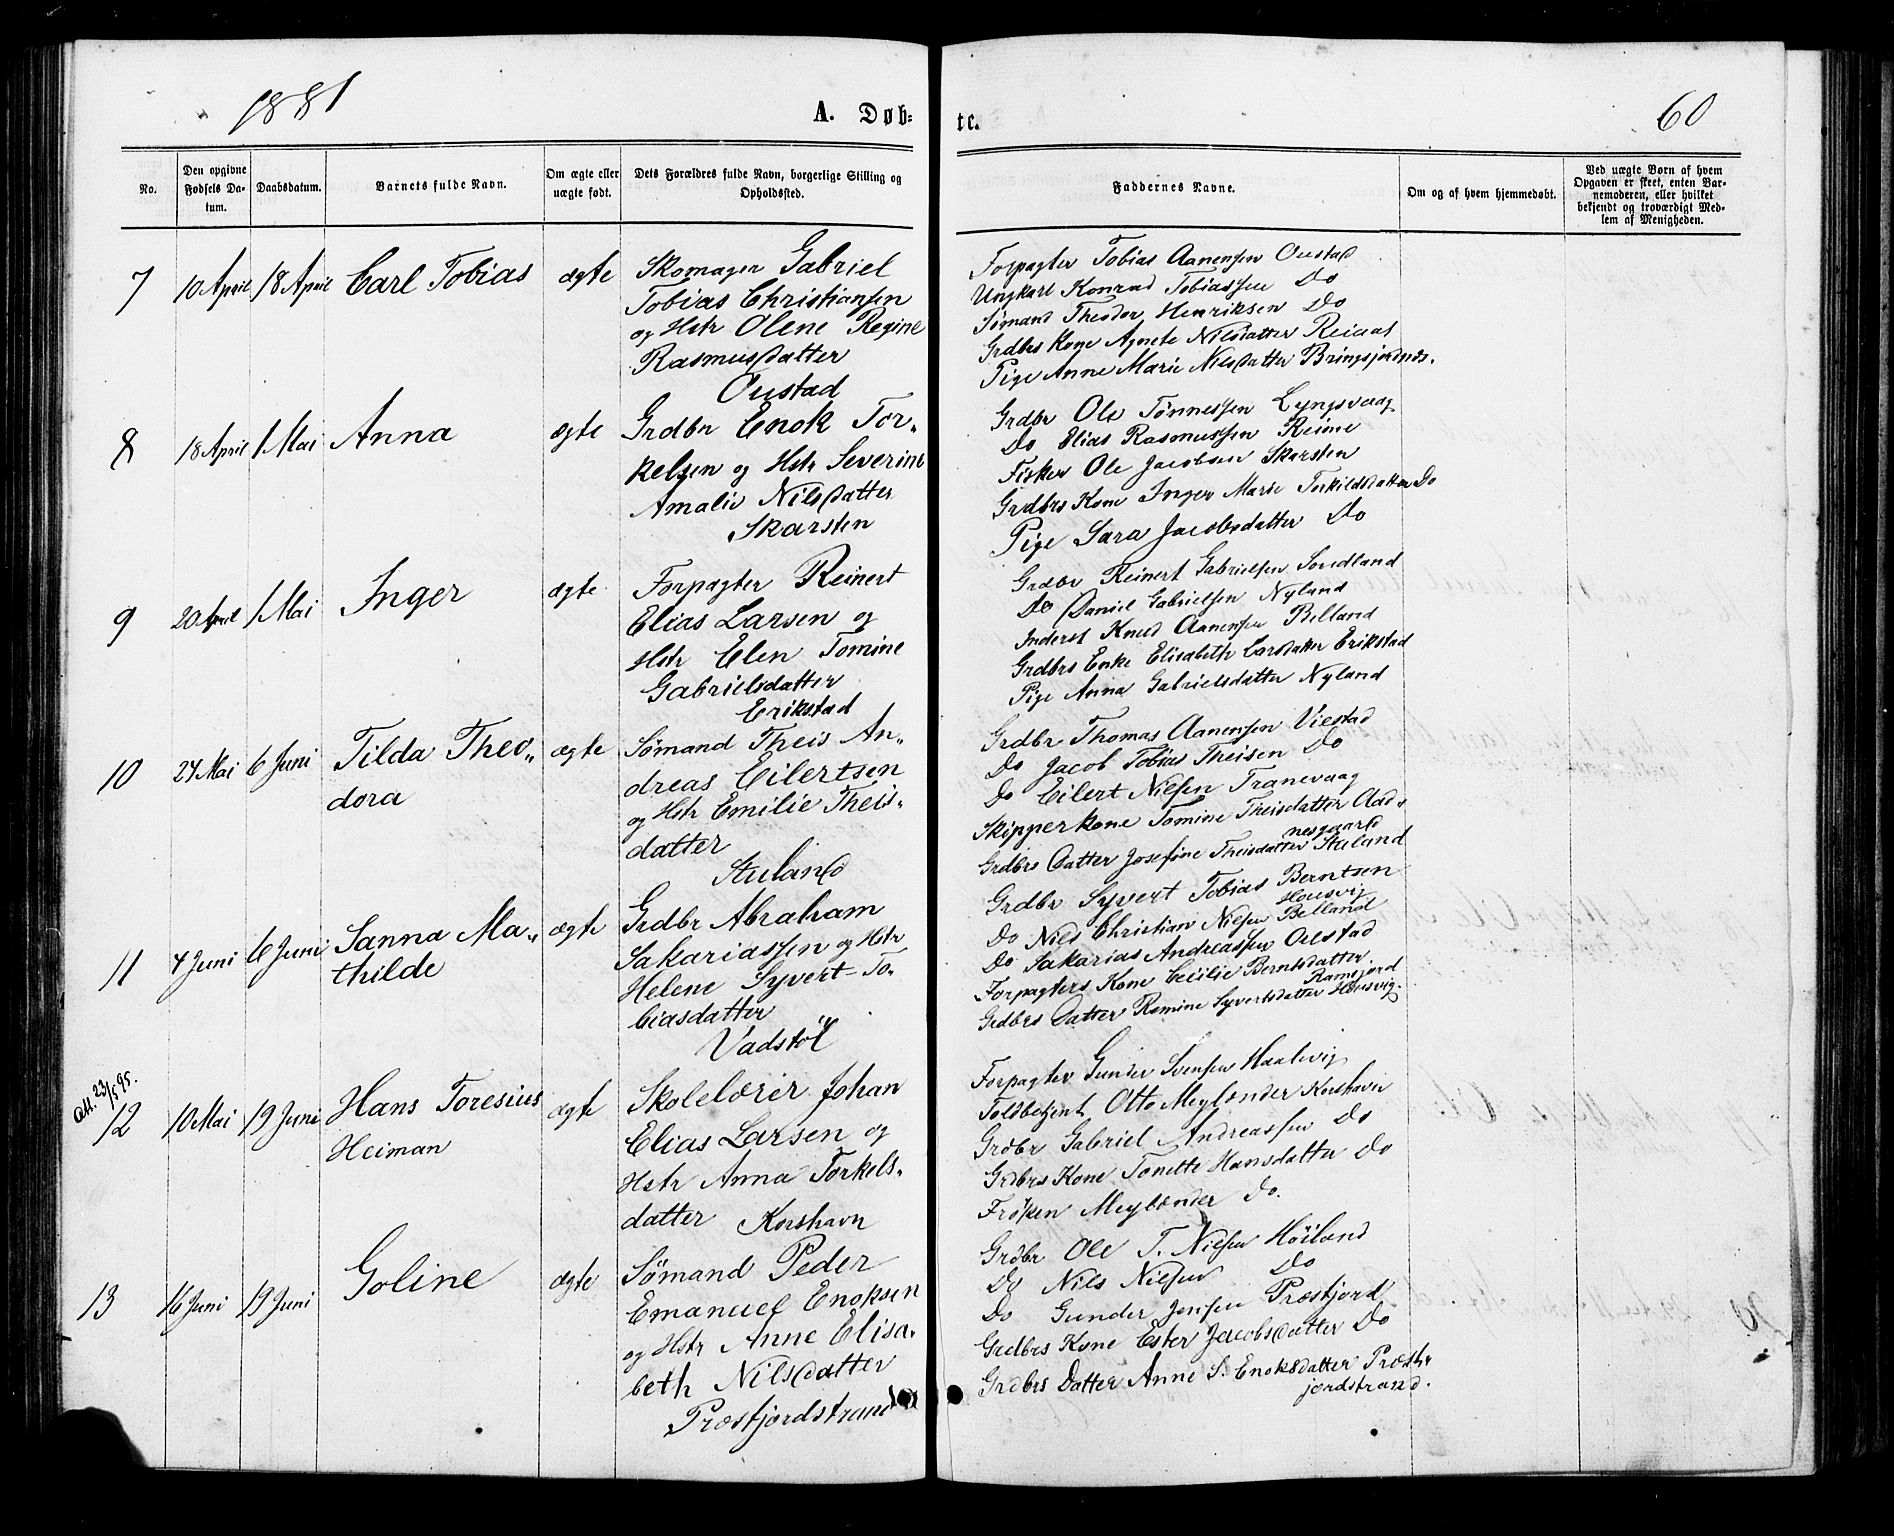 1881
A. Døb-
te.
60
No.
Den opgivne
Fødsels Da-
tum.
Daabsdatum.
Barnets fulde Navn.
Om ægte eller
uægte født.
Dets Forældres fulde Navn, borgerlige Stilling og
Opholdssted.
Faddernes Navne.
Om og af hvem hjemmedøbt.
Ved uægte Børn af hvem
Opgaven er skeet, enten Bar-
nemoderen, eller hvilket
bekjendt og troværdigt Med-
lem af Menigheden.
7 10 April 18 April Carl Tobias ægte Skomager Gabriel
Tobias Christiansen
og Hstr Olene Regine
Rasmusdatter
Oustad
Forpagter Tobias Aanensen Oustad
Ungkarl Konrad Tobiassen Do
Sømand Theodor Henriksen Do
Grdbrs Kone Agnete Nilsdatter Reiaas
Pige Anne Marie Nilsdatter Bringsjordnæs.
8 18 April 1 Mai Anna ægte Grdbr Enok Tor„
kelsen og Hstr Severine
Amalie Nilsdatter
Skarsten
Grdbr Ole Tønnessen Lyngsvaag
Do Elias Rasmussen Reime
Fisker Ole Jacobsen Skarsten
Grdbrs Kone Inger Marie Torkildsdatter Do
Pige Sara Jacobsdatter Do
9 20 April 1 Mai Inger ægte Forpagter Reinert
Elias Larsen og
Hstr Elen Tomine
Gabrielsdatter
Erikstad
Grdbr Reinert Gabrielsen Sordland
Do Daniel Gabrielsen Nyland
Inderst Knud Aanensen Belland
Grdbrs Enke Elisabeth Larsdatter Erikstad
Pige Anna Gabrielsdatter Nyland
10 24 Mai 6 Juni Tilda Theo„
dora
ægte Sømand Theis An„
dreas Eilertsen
og Hstr Emilie Theis„
datter
Stuland
Grdbr Thomas Aanensen Viestad
Do Jacob Tobias Theisen Do
Do Eilert Nielsen Tranevaag
Skipperkone Tomine Theisdatter Aad„
nesgaard
Grdbrs Datter Josefine Theisdatter Stuland
11 4 Juni 6 Juni Sanna Ma„
thilde
ægte Grdbr Abraham
Sakariassen og Hstr
Helene Syvert-To-
biasdatter
Vadstöl
Grdbr Syvert Tobias Berntsen
Housvig
Do Nils Christian Nielsen Belland
Do Sakarias Andreassen Oustad
Forpagters Kone Cecilie Berntsdatter
Ramsjord
Grdbrs Datter Romine Syvertsdatter Housvig.
Att. 23/5 95.
12 10 Mai 19 Juni Hans Toresius
Heiman
ægte Skolelærer Johan
Elias Larsen og
Hstr Anna Torkels„
datter Korshavn
Forpagter Gunder Svensen Haalevig
Toldbetjent Otto Meylænder Korshavn
Grdbr Gabriel Andreassen Do
Grdbrs Kone Tonette Hansdatter Do
Frøken Meylænder Do.
13 16 Juni 19 Juni Goline ægte Sømand Peder
Emanuel Enoksen
og Hstr Anne Elisa„
beth Nilsdatter
Præstjordstrand
Grdbr Ole T. Nielsen Höiland
Do Nils Nielsen Do
Do Gunder Jensen Præstjord
Grdbrs Kone Ester Jacobsdatter Do
Grdbrs Datter Anne S. Enoksdatter Præst„
jordstrand.